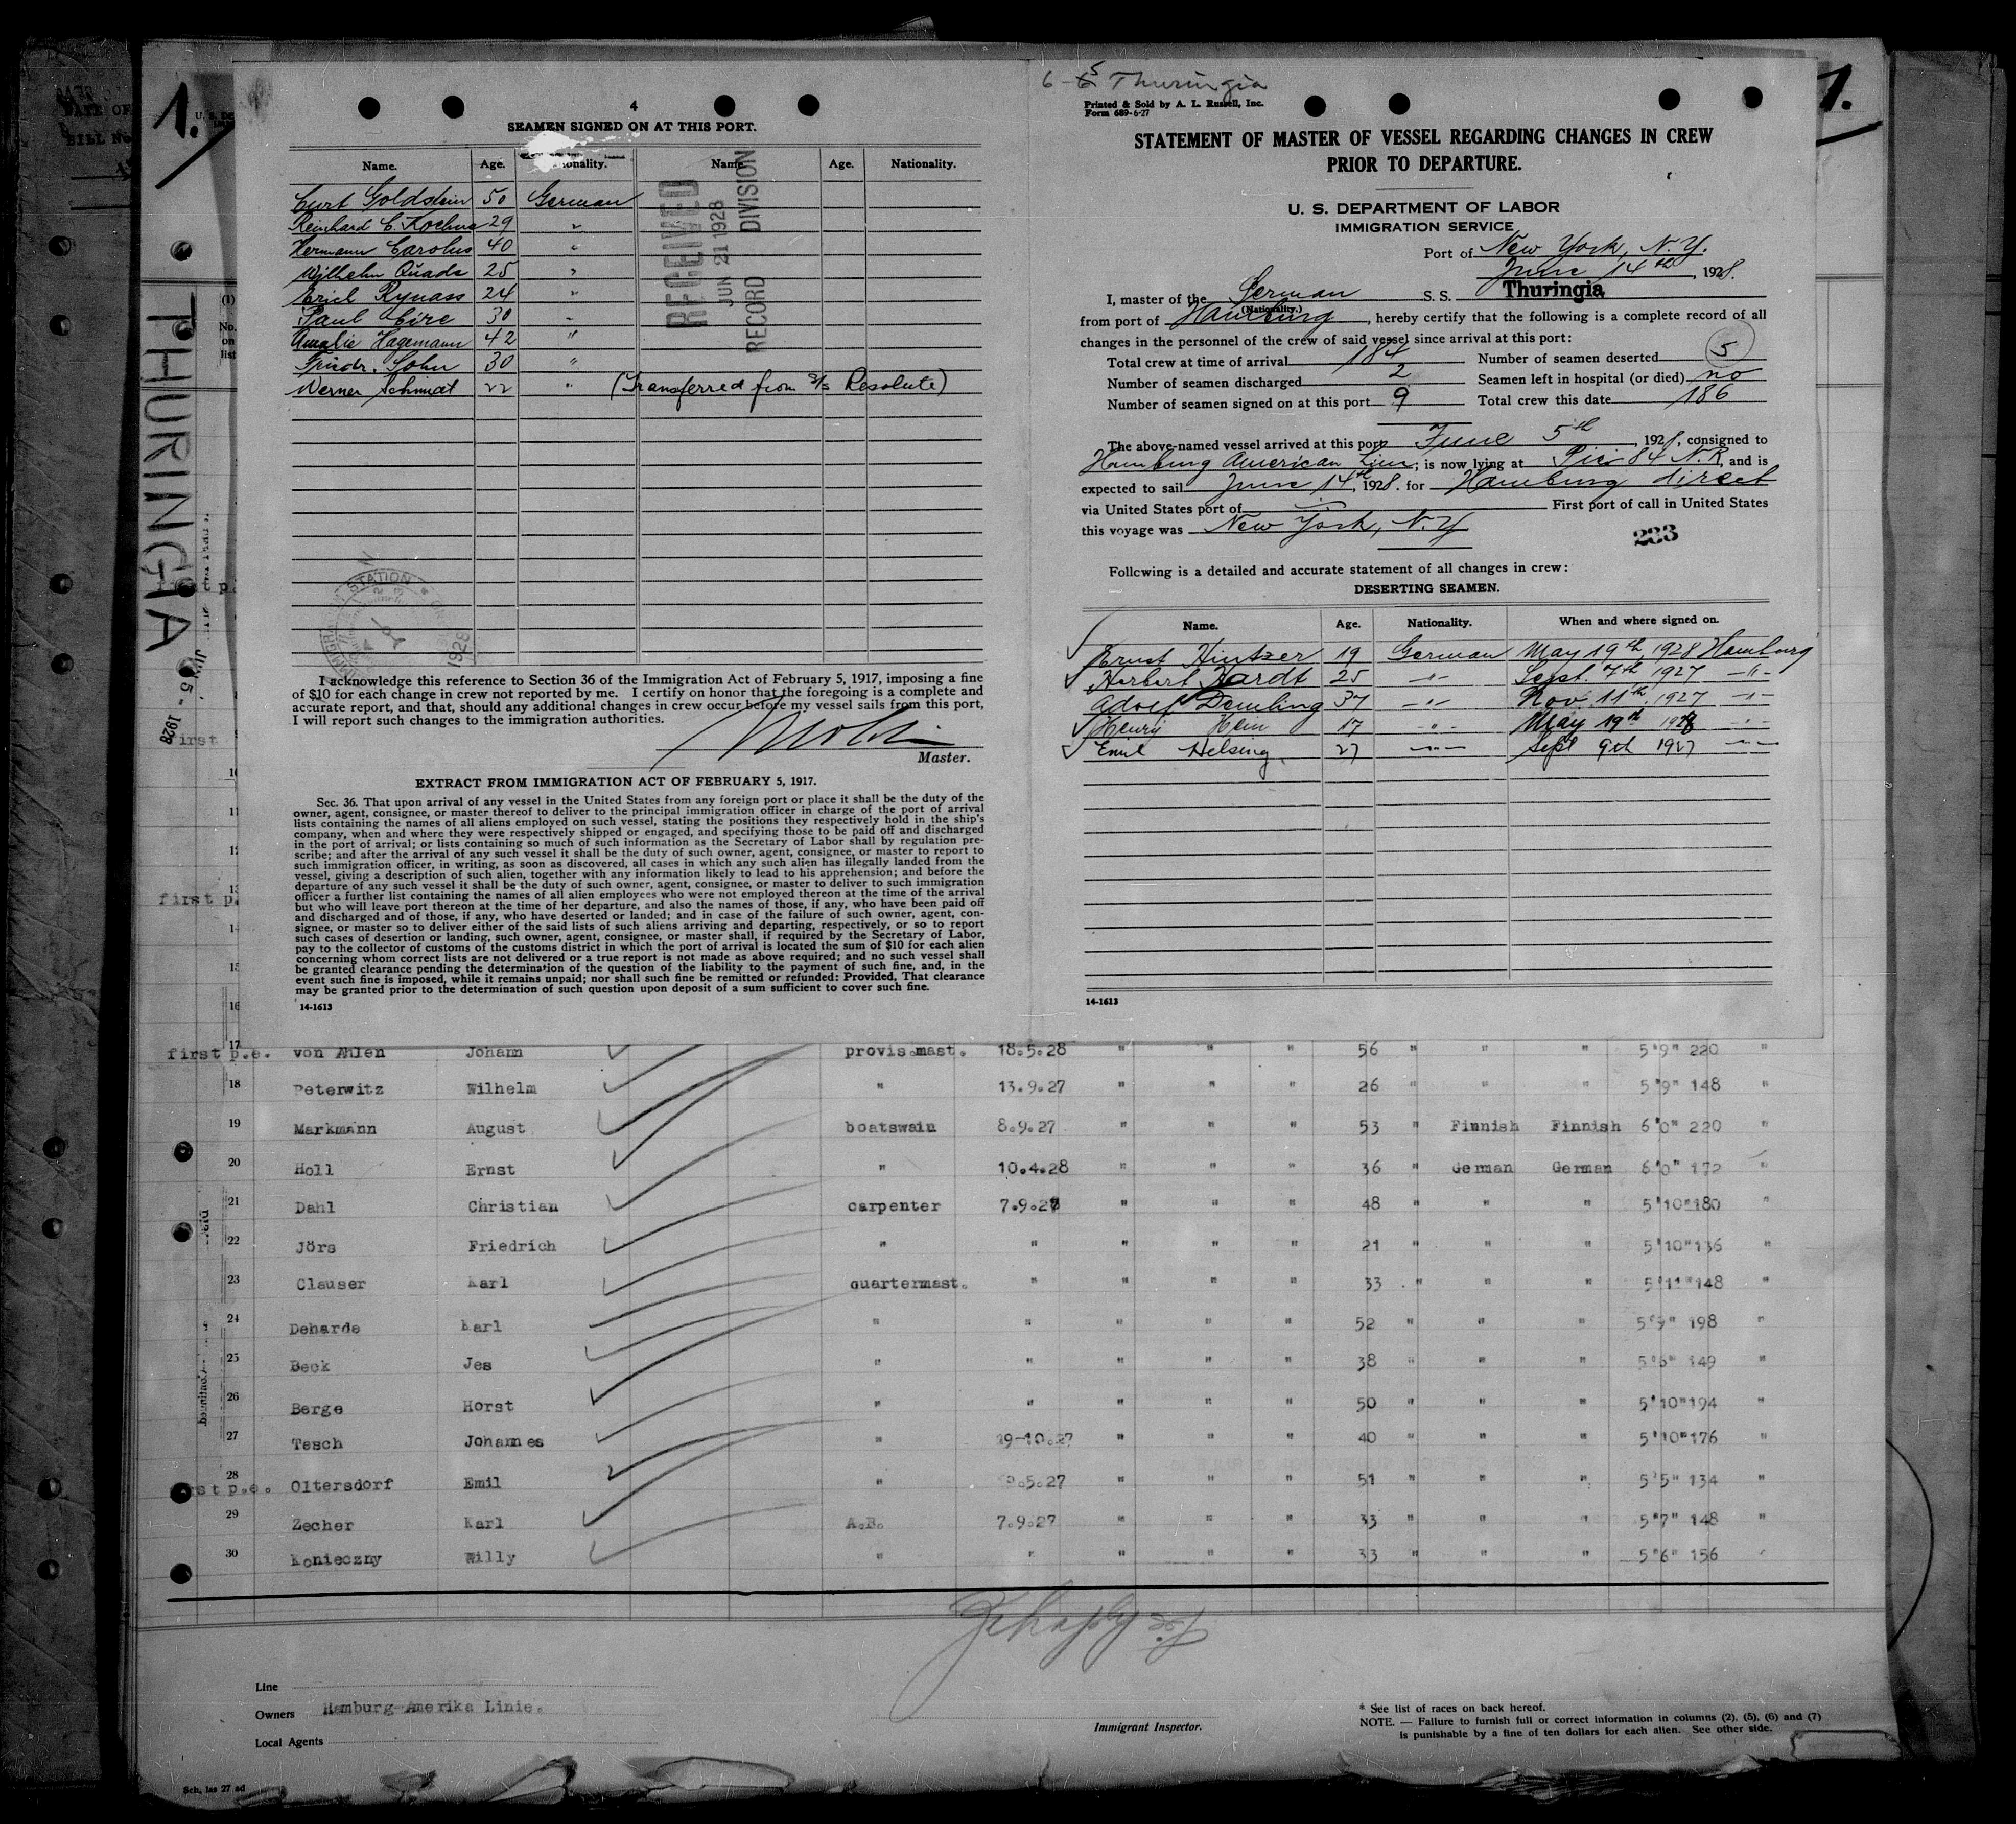 DATE OF
BILL No
1.
1.
THURINGIA
JUN 5 - 1928
4
SEAMEN SIGNED ON AT THIS PORT.
Name. Age. Nationality. Name. Age. Nationality.
Curt Goldstein 50 German
Reinhard C. 29 "
Hermann Carolus 40 "
Wilhelm Quade 25 "
Erich Rynass 24 "
Paul 30 "
Amalie Hagemann 42 "
Friedr. John 30 "
Werner Schmidt 22 " (Transferred from S/S Resolute)
RECEIVED
JUN 21 1928
RECORD DIVISION
I acknowledge this reference to Section 36 of the Immigration Act of February 5, 1917, imposing a fine
of $10 for each change in crew not reported by me. I certify on honor that the foregoing is a complete and
accurate report, and that, should any additional changes in crew occur before my vessel sails from this port,
I will report such changes to the immigration authorities.
Master.
EXTRACT FROM IMMIGRATION ACT OF FEBRUARY 5, 1917.
Sec. 36. That upon arrival of any vessel in the United States from any foreign port or place it shall be the duty of the
owner, agent, consignee, or master thereof to deliver to the principal immigration officer in charge of the port of arrival
lists containing the names of all aliens employed on such vessel, stating the positions they respectively hold in the ship's
company, when and where they were respectively shipped or engaged, and specifying those to be paid off and discharged
in the port of arrival; or lists containing so much of such information as the Secretary of Labor shall by regulation pre-
scribe; and after the arrival of any such vessel it shall be the duty of such owner, agent, consignee, or master to report to
such immigration officer, in writing, as soon as discovered, all cases in which any such alien has illegally landed from the
vessel, giving a description of such alien, together with any information likely to lead to his apprehension; and before the
departure of any such vessel it shall be the duty of such owner, agent, consignee, or master to deliver to such immigration
officer a further list containing the names of all alien employees who were not employed thereon at the time of the arrival
but who will leave port thereon at the time of her departure, and also the names of those, if any, who have been paid off
and discharged and of those, if any, who have deserted or landed; and in case of the failure of such owner, agent, con-
signee, or master so to deliver either of the said lists of such aliens arriving and departing, respectively, or so to report
such cases of desertion or landing, such owner, agent, consignee, or master shall, if required by the Secretary of Labor,
pay to the collector of customs of the customs district in which the port of arrival is located the sum of $10 for each alien
concerning whom correct lists are not delivered or a true report is not made as above required; and no such vessel shall
be granted clearance pending the determination of the question of the liability to the payment of such fine, and, in the
event such fine is imposed, while it remains unpaid; nor shall such fine be remitted or refunded: Provided, That clearance
may be granted prior to the determination of such question upon deposit of a sum sufficient to cover such fine.
14-1613
6-5 Thuringia
Printed & Sold by A. L. Russell, Inc.
Form 689-6-27
STATEMENT OF MASTER OF VESSEL REGARDING CHANGES IN CREW
PRIOR TO DEPARTURE.
U. S. DEPARTMENT OF LABOR
IMMIGRATION SERVICE
Port of New York, N.Y.
June 14th, 1928.
I, master of the German S. S. Thuringia
(Nationality.)
from port of Hamburg, hereby certify that the following is a complete record of all
changes in the personnel of the crew of said vessel since arrival at this port:
Total crew at time of arrival 184 Number of seamen deserted 5
Number of seamen discharged 2 Seamen left in hospital (or died) no
Number of seamen signed on at this port 9 Total crew this date 186
The above-named vessel arrived at this port June 5th, 1928, consigned to
Hamburg American Line; is now lying at Pier 84 N.R, and is
expected to sail June 14th, 1928. for Hamburg direct
via United States port of First port of call in United States
this voyage was New York, N.Y
233
Following is a detailed and accurate statement of all changes in crew:
DESERTING SEAMEN.
Name. Age. Nationality. When and where signed on.
Ernst Hintzer 19 German May 19th, 1928 Hamburg
Herbert Hardt 25 -"- Sept. 7th 1927 -"-
Adolf Demling 37 -"- Nov. 11th 1927 -"-
Henry Hein 17 -"- May 19th 1928 -"-
Emil Helsing 27 -"- Sept 9th 1927 -"-
14-1613
first p.e. 17 von Ahlen Johann provis.mast. 18.5.28 " " " 56 " " " 5'9" 220 "
18 Peterwitz Wilhelm " 13.9.27 " " " 26 " " " 5'9" 148 "
19 Markmann August boatswain 8.9.27 " " " 53 " Finnish Finnish 6'0" 220 "
20 Holl Ernst " 10.4.28 " " " 36 " German German 6'0" 172 "
21 Dahl Christian carpenter 7.9.27 " " " 48 " " " 5'10" 180 "
22 Jörs Friedrich " " " " " 21 " " " 5'10" 136 "
23 Clauser Karl quartermast. " " " " 33 " " " 5'11" 148 "
24 Deharde Karl " " " " " 52 " " " 5'9" 198 "
25 Beck Jes " " " " " 38 " " " 5'6" 149 "
26 Berge Horst " " " " " 50 " " " 5'10" 194 "
27 Tesch Johannes " 19-10.27 " " " 40 " " " 5'10" 176 "
first p.e. 28 Oltersdorf Emil " 9.5.27 " " " 51 " " " 5'5" 134 "
29 Zecher Karl A.B. 7.9.27 " " " 33 " " " 5'7" 148 "
30 Konieczny Willy " " " " " 33 " " " 5'6" 156 "
Line
Owners Hamburg-Amerika Linie.
Local Agents
Immigrant Inspector.
* See list of races on back hereof.
NOTE. — Failure to furnish full or correct information in columns (2), (5), (6) and (7)
is punishable by a fine of ten dollars for each alien. See other side.
Sch, las 27 ad